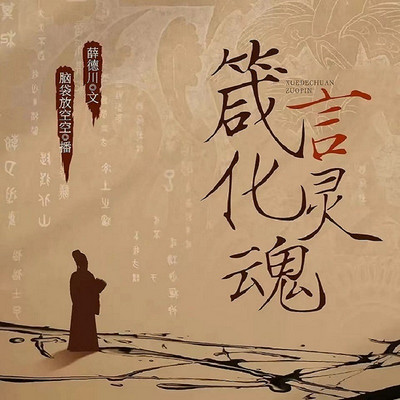 箴言
化灵
魂
XUEDECHUAN
ZUOPIN
薛德川◎文
脑袋放空空◎播